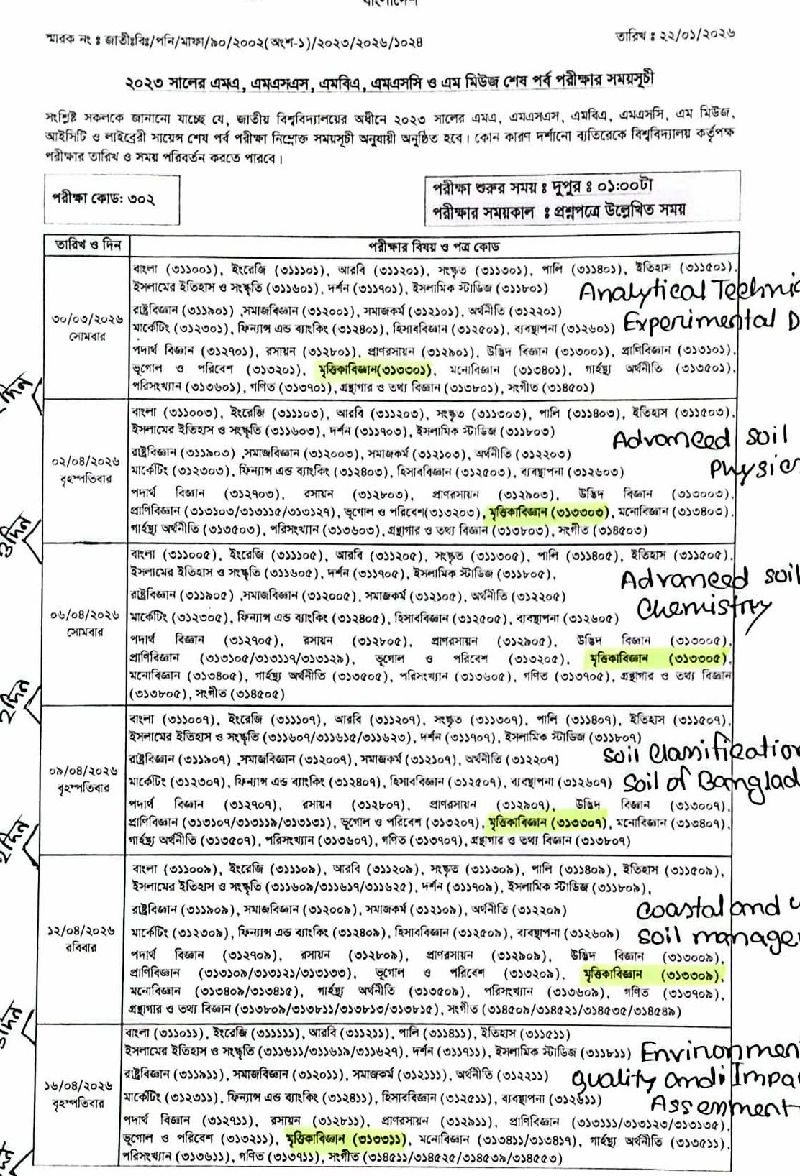 বাংলাদেশ
স্মারক নং ঃ জাতীঃবিঃ/পনি/মাফা/৯০/২০০২(অংশ-১)/২০২৩/২০২৬/১০২৪
তারিখ ঃ ২২/০১/২০২৬
২০২৩ সালের এমএ, এমএসএস, এমবিএ, এমএসসি ও এম মিউজ শেষ পর্ব পরীক্ষার সময়সূচী
সংশ্লিষ্ট সকলকে জানানো যাচ্ছে যে, জাতীয় বিশ্ববিদ্যালয়ের অধীনে ২০২৩ সালের এমএ, এমএসএস, এমবিএ, এমএসসি, এম মিউজ,
আইসিটি ও লাইব্রেরী সায়েন্স শেষ পর্ব পরীক্ষা নিম্নোক্ত সময়সূচী অনুযায়ী অনুষ্ঠিত হবে। কোন কারণ দর্শানো ব্যতিরেকে বিশ্ববিদ্যালয় কর্তৃপক্ষ
পরীক্ষার তারিখ ও সময় পরিবর্তন করতে পারবে।
পরীক্ষা কোড: ৩০২
পরীক্ষা শুরুর সময় ঃ দুপুর ঃ ০১:০০টা
পরীক্ষার সময়কাল ঃ প্রশ্নপত্রে উল্লেখিত সময়
তারিখ ও দিন
পরীক্ষার বিষয় ও পত্র কোড
৩০/০৩/২০২৬
সোমবার
বাংলা (৩১১০০১), ইংরেজি (৩১১১০১), আরবি (৩১১২০১), সংস্কৃত (৩১১৩০১), পালি (৩১১৪০১), ইতিহাস (৩১১৫০১),
ইসলামের ইতিহাস ও সংস্কৃতি (৩১১৬০১), দর্শন (৩১১৭০১), ইসলামিক স্টাডিজ (৩১১৮০১)
Analytical Technic
রাষ্ট্রবিজ্ঞান (৩১১৯০১) ,সমাজবিজ্ঞান (৩১২০০১), সমাজকর্ম (৩১২১০১), অর্থনীতি (৩১২২০১)
মার্কেটিং (৩১২৩০১), ফিন্যান্স এন্ড ব্যাংকিং (৩১২৪০১), হিসাববিজ্ঞান (৩১২৫০১), ব্যবস্থাপনা (৩১২৬০১)
Experimental D
পদার্থ বিজ্ঞান (৩১২৭০১), রসায়ন (৩১২৮০১), প্রাণরসায়ন (৩১২৯০১), উদ্ভিদ বিজ্ঞান (৩১৩০০১), প্রাণিবিজ্ঞান (৩১৩১০১),
ভূগোল ও পরিবেশ (৩১৩২০১), মৃত্তিকাবিজ্ঞান(৩১৩৩০১), মনোবিজ্ঞান (৩১৩৪০১), গার্হস্থ্য অর্থনীতি (৩১৩৫০১),
পরিসংখ্যান (৩১৩৬০১), গণিত (৩১৩৭০১), গ্রন্থাগার ও তথ্য বিজ্ঞান (৩১৩৮০১), সংগীত (৩১৪৫০১)
দিন
০২/০৪/২০২৬
বৃহস্পতিবার
বাংলা (৩১১০০৩), ইংরেজি (৩১১১০৩), আরবি (৩১১২০৩), সংস্কৃত (৩১১৩০৩), পালি (৩১১৪০৩), ইতিহাস (৩১১৫০৩),
ইসলামের ইতিহাস ও সংস্কৃতি (৩১১৬০৩), দর্শন (৩১১৭০৩), ইসলামিক স্টাডিজ (৩১১৮০৩)
রাষ্ট্রবিজ্ঞান (৩১১৯০৩) ,সমাজবিজ্ঞান (৩১২০০৩), সমাজকর্ম (৩১২১০৩), অর্থনীতি (৩১২২০৩)
Advanced soil
মার্কেটিং (৩১২৩০৩), ফিন্যান্স এন্ড ব্যাংকিং (৩১২৪০৩), হিসাববিজ্ঞান (৩১২৫০৩), ব্যবস্থাপনা (৩১২৬০৩)
Physics
পদার্থ বিজ্ঞান (৩১২৭০৩), রসায়ন (৩১২৮০৩), প্রাণরসায়ন (৩১২৯০৩), উদ্ভিদ বিজ্ঞান (৩১৩০০৩),
প্রাণিবিজ্ঞান (৩১৩১০৩/৩১৩১১৫/৩১৩১২৭), ভূগোল ও পরিবেশ(৩১৩২০৩), মৃত্তিকাবিজ্ঞান (৩১৩৩০৩), মনোবিজ্ঞান (৩১৩৪০৩),
গার্হস্থ্য অর্থনীতি (৩১৩৫০৩), পরিসংখ্যান (৩১৩৬০৩), গ্রন্থাগার ও তথ্য বিজ্ঞান (৩১৩৮০৩), সংগীত (৩১৪৫০৩)
৩দিন
০৬/০৪/২০২৬
সোমবার
বাংলা (৩১১০০৫), ইংরেজি (৩১১১০৫), আরবি (৩১১২০৫), সংস্কৃত (৩১১৩০৫), পালি (৩১১৪০৫), ইতিহাস (৩১১৫০৫),
ইসলামের ইতিহাস ও সংস্কৃতি (৩১১৬০৫), দর্শন (৩১১৭০৫), ইসলামিক স্টাডিজ (৩১১৮০৫),
Advanced soil
রাষ্ট্রবিজ্ঞান (৩১১৯০৫) ,সমাজবিজ্ঞান (৩১২০০৫), সমাজকর্ম (৩১২১০৫), অর্থনীতি (৩১২২০৫)
মার্কেটিং (৩১২৩০৫), ফিন্যান্স এন্ড ব্যাংকিং (৩১২৪০৫), হিসাববিজ্ঞান (৩১২৫০৫), ব্যবস্থাপনা (৩১২৬০৫)
Chemistry
পদার্থ বিজ্ঞান (৩১২৭০৫), রসায়ন (৩১২৮০৫), প্রাণরসায়ন (৩১২৯০৫), উদ্ভিদ বিজ্ঞান (৩১৩০০৫),
প্রাণিবিজ্ঞান (৩১৩১০৫/৩১৩১১৭/৩১৩১২৯), ভূগোল ও পরিবেশ (৩১৩২০৫), মৃত্তিকাবিজ্ঞান (৩১৩৩০৫),
মনোবিজ্ঞান (৩১৩৪০৫), গার্হস্থ্য অর্থনীতি (৩১৩৫০৫), পরিসংখ্যান (৩১৩৬০৫), গণিত (৩১৩৭০৫), গ্রন্থাগার ও তথ্য বিজ্ঞান
(৩১৩৮০৫), সংগীত (৩১৪৫০৫)
২দিন
০৯/০৪/২০২৬
বৃহস্পতিবার
বাংলা (৩১১০০৭), ইংরেজি (৩১১১০৭), আরবি (৩১১২০৭), সংস্কৃত (৩১১৩০৭), পালি (৩১১৪০৭), ইতিহাস (৩১১৫০৭),
ইসলামের ইতিহাস ও সংস্কৃতি (৩১১৬০৭/৩১১৬১৫/৩১১৬২৩), দর্শন (৩১১৭০৭), ইসলামিক স্টাডিজ (৩১১৮০৭)
রাষ্ট্রবিজ্ঞান (৩১১৯০৭) ,সমাজবিজ্ঞান (৩১২০০৭), সমাজকর্ম (৩১২১০৭), অর্থনীতি (৩১২২০৭)
Soil Classification
মার্কেটিং (৩১২৩০৭), ফিন্যান্স এন্ড ব্যাংকিং (৩১২৪০৭), হিসাববিজ্ঞান (৩১২৫০৭), ব্যবস্থাপনা (৩১২৬০৭)
Soil of Banglad
পদার্থ বিজ্ঞান (৩১২৭০৭), রসায়ন (৩১২৮০৭), প্রাণরসায়ন (৩১২৯০৭), উদ্ভিদ বিজ্ঞান (৩১৩০০৭),
প্রাণিবিজ্ঞান (৩১৩১০৭/৩১৩১১৯/৩১৩১৩১), ভূগোল ও পরিবেশ (৩১৩২০৭), মৃত্তিকাবিজ্ঞান (৩১৩৩০৭), মনোবিজ্ঞান (৩১৩৪০৭),
গার্হস্থ্য অর্থনীতি (৩১৩৫০৭), পরিসংখ্যান (৩১৩৬০৭), গণিত (৩১৩৭০৭), গ্রন্থাগার ও তথ্য বিজ্ঞান (৩১৩৮০৭)
২দিন
১২/০৪/২০২৬
রবিবার
বাংলা (৩১১০০৯), ইংরেজি (৩১১১০৯), আরবি (৩১১২০৯), সংস্কৃত (৩১১৩০৯), পালি (৩১১৪০৯), ইতিহাস (৩১১৫০৯),
ইসলামের ইতিহাস ও সংস্কৃতি (৩১১৬০৯/৩১১৬১৭/৩১১৬২৫), দর্শন (৩১১৭০৯), ইসলামিক স্টাডিজ (৩১১৮০৯),
রাষ্ট্রবিজ্ঞান (৩১১৯০৯), সমাজবিজ্ঞান (৩১২০০৯), সমাজকর্ম (৩১২১০৯), অর্থনীতি (৩১২২০৯)
Coastal and
মার্কেটিং (৩১২৩০৯), ফিন্যান্স এন্ড ব্যাংকিং (৩১২৪০৯), হিসাববিজ্ঞান (৩১২৫০৯), ব্যবস্থাপনা (৩১২৬০৯)
Soil manage
পদার্থ বিজ্ঞান (৩১২৭০৯), রসায়ন (৩১২৮০৯), প্রাণরসায়ন (৩১২৯০৯), উদ্ভিদ বিজ্ঞান (৩১৩০০৯),
প্রাণিবিজ্ঞান (৩১৩১০৯/৩১৩১২১/৩১৩১৩৩), ভূগোল ও পরিবেশ (৩১৩২০৯), মৃত্তিকাবিজ্ঞান (৩১৩৩০৯),
মনোবিজ্ঞান (৩১৩৪০৯/৩১৩৪১৫), গার্হস্থ্য অর্থনীতি (৩১৩৫০৯), পরিসংখ্যান (৩১৩৬০৯), গণিত (৩১৩৭০৯),
গ্রন্থাগার ও তথ্য বিজ্ঞান (৩১৩৮০৯/৩১৩৮১১/৩১৩৮১৩/৩১৩৮১৫), সংগীত (৩১৪৫০৯/৩১৪৫২১/৩১৪৫৩৫/৩১৪৫৪৯)
৩দিন
১৬/০৪/২০২৬
বৃহস্পতিবার
বাংলা (৩১১০১১), ইংরেজি (৩১১১১১), আরবি (৩১১২১১), পালি (৩১১৪১১), ইতিহাস (৩১১৫১১)
ইসলামের ইতিহাস ও সংস্কৃতি (৩১১৬১১/৩১১৬১৯/৩১১৬২৭), দর্শন (৩১১৭১১), ইসলামিক স্টাডিজ (৩১১৮১১)
Environmen
রাষ্ট্রবিজ্ঞান (৩১১৯১১), সমাজবিজ্ঞান (৩১২০১১), সমাজকর্ম (৩১২১১১), অর্থনীতি (৩১২২১১)
quality and Impa
মার্কেটিং (৩১২৩১১), ফিন্যান্স এন্ড ব্যাংকিং (৩১২৪১১), হিসাববিজ্ঞান (৩১২৫১১), ব্যবস্থাপনা (৩১২৬১১)
Assesment
পদার্থ বিজ্ঞান (৩১২৭১১), রসায়ন (৩১২৮১১), প্রাণরসায়ন (৩১২৯১১), প্রাণিবিজ্ঞান (৩১৩১১১/৩১৩১২৩/৩১৩১৩৫),
ভূগোল ও পরিবেশ (৩১৩২১১), মৃত্তিকাবিজ্ঞান (৩১৩৩১১), মনোবিজ্ঞান (৩১৩৪১১/৩১৩৪১৭), গার্হস্থ্য অর্থনীতি (৩১৩৫১১),
পরিসংখ্যান (৩১৩৬১১), গণিত (৩১৩৭১১), সংগীত (৩১৪৫১১/৩১৪৫২৫/৩১৪৫৩৯/৩১৪৫৫৩)